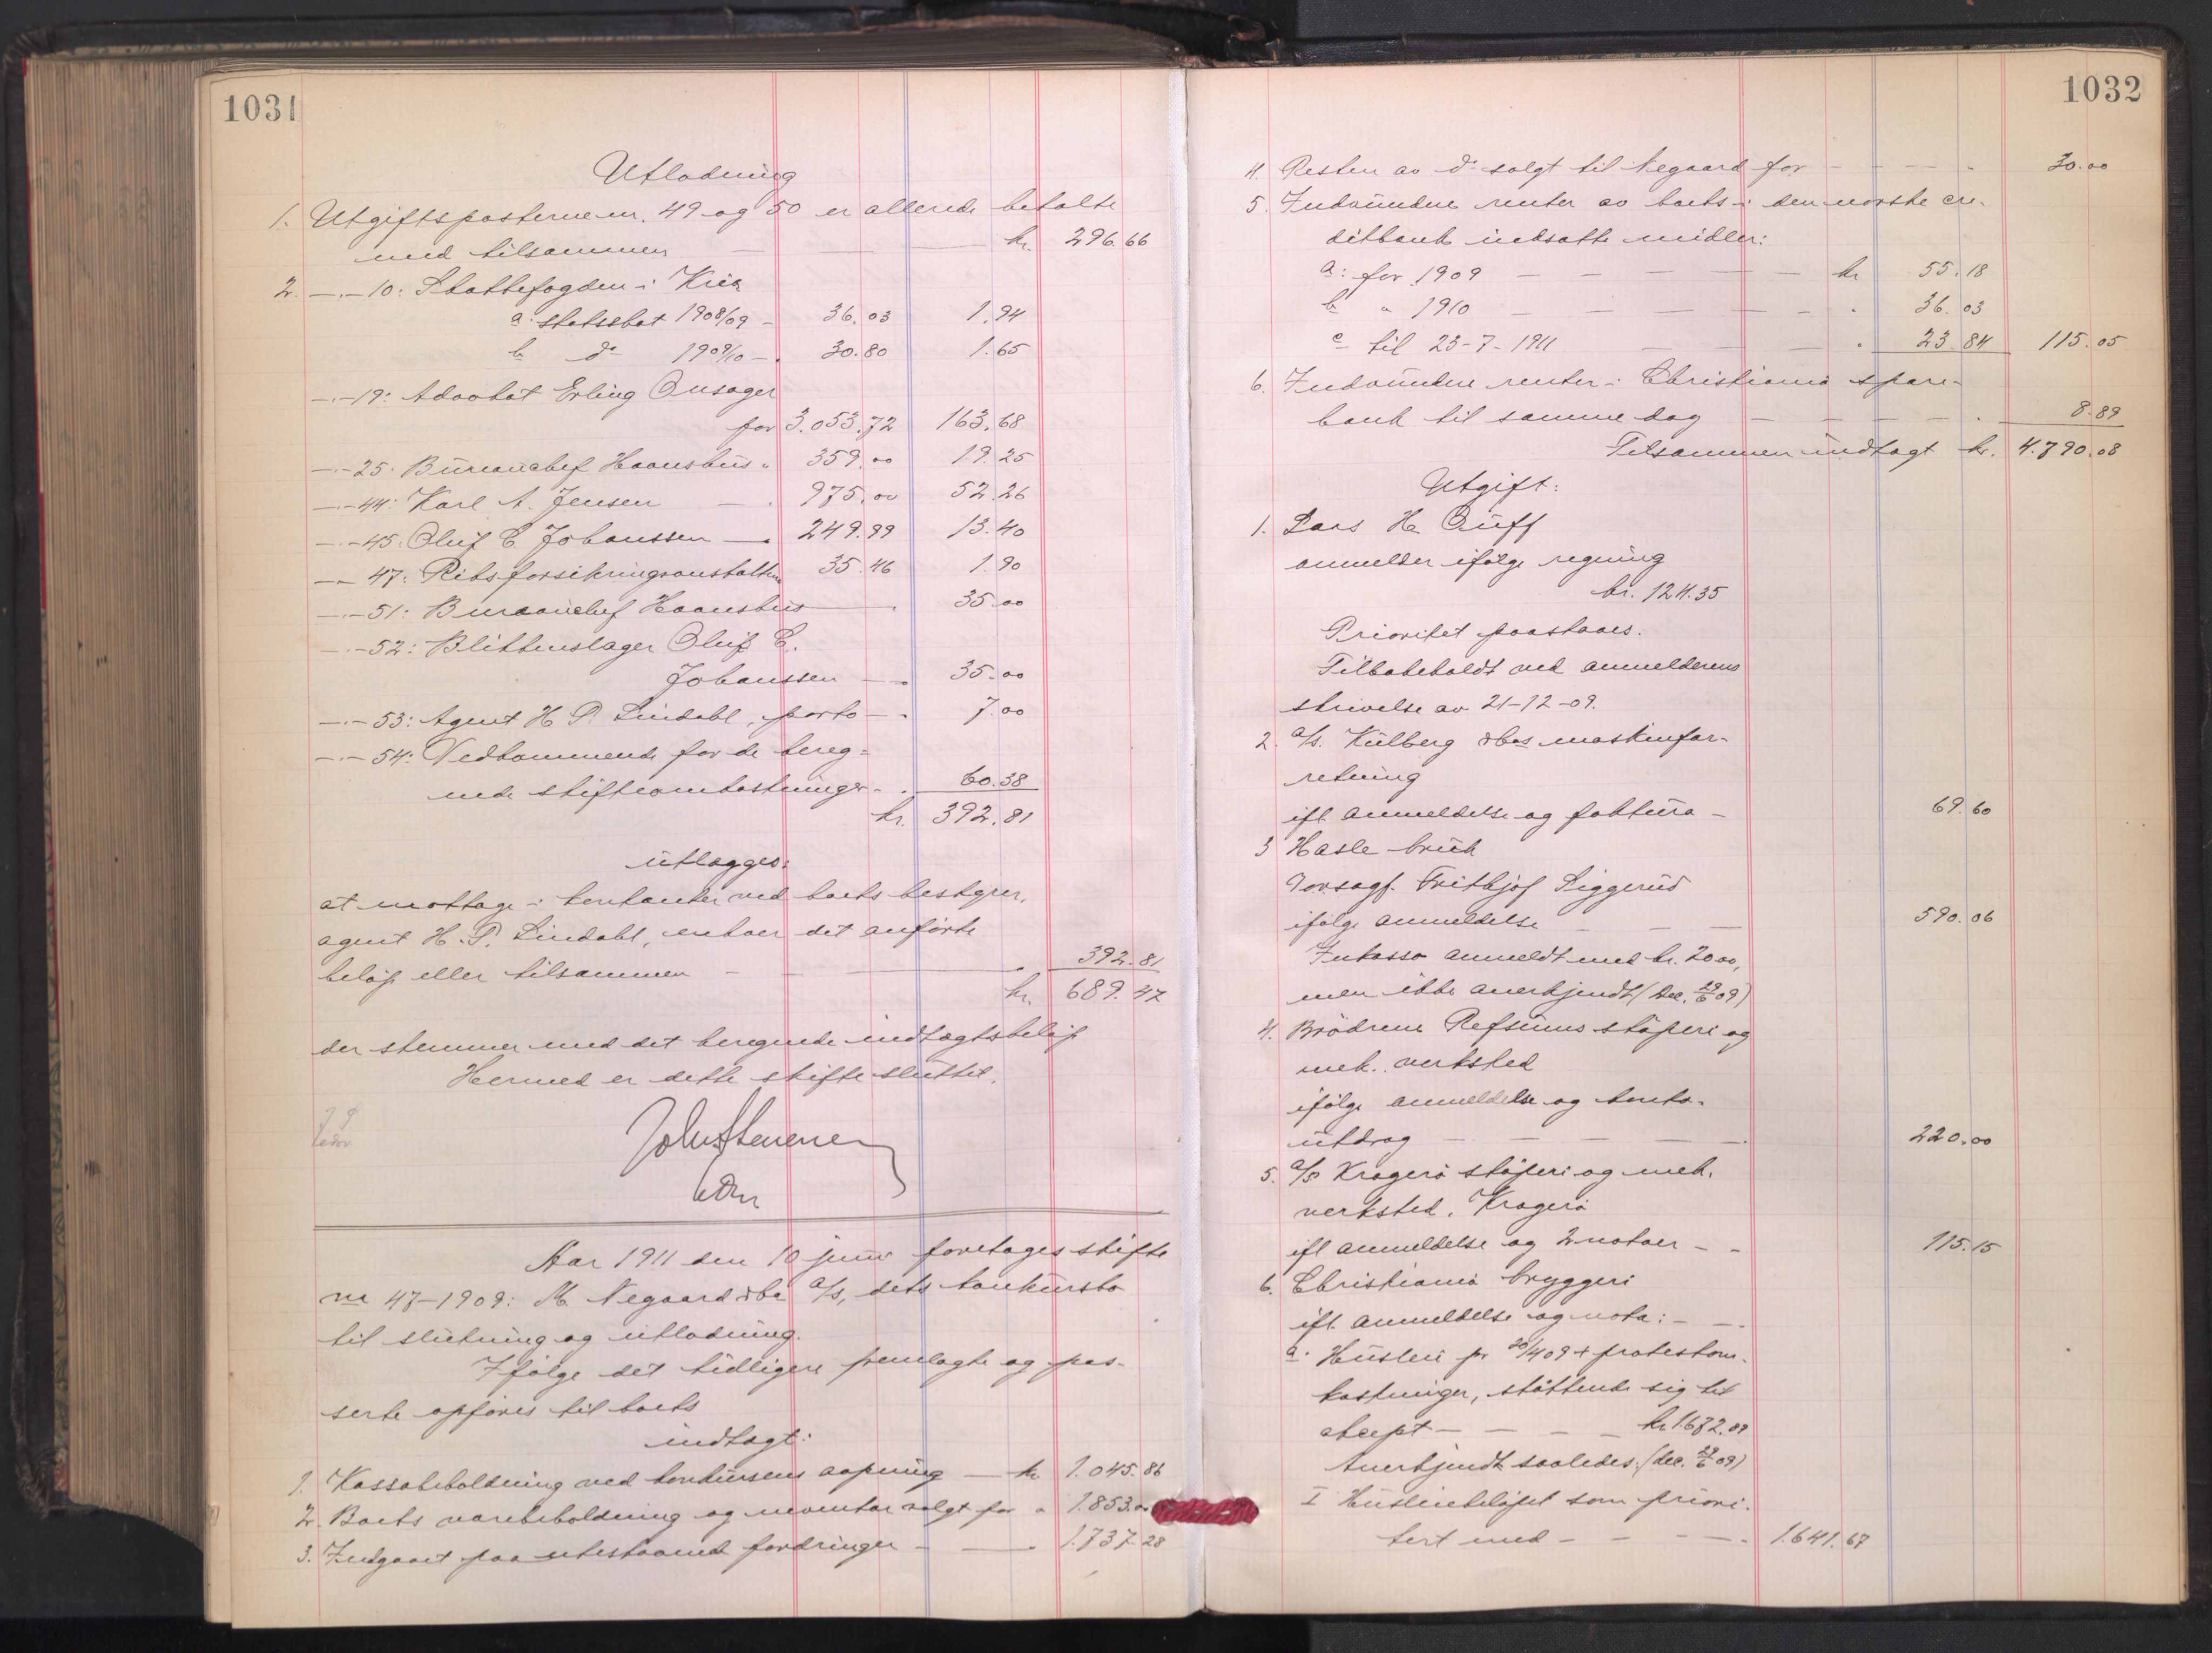 1031
Utlodning
1. Utgiftsposterne nr. 49 og 50 er allerede betalte
med tilsammen — — kr. 296.66
2. —.— 10: Skattefogden i Kria
a: statsskat 1908/09 - 36.03 1.94
b do 1909/10 - 30.80 1.65
—.— 19: Advokat Erling Onsager
for 3.053.72 163.68
—.— 25: Bureauchef Haanshus " 359.00 19.25
—.— 44: Karl A. Jensen — 975.00 52.26
—.— 45. Oluf E Johanssen — 249.99 13.40
—.— 47: Riksforsikringsanstalten 35.46 1.90
—.— 51: Bureauchef Haanshus — 35.00
—.— 52: Blikkenslager Oluf E.
Johanssen — 35.00
—.— 53: Agent H. P. Lindahl, porto — 7.00
—.— 54: Vedkommende for de bereg-
nede skifteomkostninger - 60.38
kr. 392.81
utlægges:
at mottage i kontanter ved boets bestyrer,
agent H. P. Lindahl, enhver det anførte
beløp eller tilsammen — — 392.81
kr. 689.47
der stemmer med det beregnede indtægtsbeløp
Hermed er dette skifte sluttet.
Aar 1911 den 10 juni foretages skifte
nr 47-1909: M. Negaard & Co A/S, dets konkursbo
til slutning og utlodning.
Ifølge det tidligere fremlagte og pas-
serte opføres til boets
indtægt:
1. Kassabeholdning ved konkursens aapning — kr 1.045.86
2. Boets varebeholdning og inventar solgt for " 1.853.00
3. Indgaaet paa utestaaende fordringer — — 1.737.28
1032
4. Resten av do solgt til Negaard for — — — 30.00
5. Indvundne renter av boets i den norske cre-
ditbank indsatte midler:
a: for 1909 — — — — — kr 55.18
b " 1910 — — — — — 36.03
c til 23-7-1911 — — — 23.84 115.05
6. Indvundne renter i Christiania spare-
bank til samme dag — — — 8.89
Tilsammen indtægt kr. 4.790.08
Utgift:
1. Lars H. Ruff
anmelder ifølge regning
kr. 124.35
Prioritet paastaaes.
Tilbakekaldt ved anmelderens
skrivelse av 21-12-09.
2. A/S. Kulberg & Cos maskinfor-
retning
ifl. anmeldelse og faktura - 69.60
3 Hasle bruk
v/orsagf. Frithjof Siggerud
ifølge anmeldelse — — — 590.06
Inkasso anmeldt med kr. 20.00,
men ikke anerkjendt (dec. 29/6 09)
4. Brødrene Refsums støperi og
mek. verksted
ifølge anmeldelse og konto-
utdrag — — — — — 220.00
5. A/S Kragerø støperi og mek.
verksted, Kragerø
ifl anmeldelse og 2 notaer - - 115.15
6. Christiania bryggeri
ifl. anmeldelse og nota: - -
a. Husleie pr 20/4 09 + protestom-
kostninger, støttende sig til
aksept — — — — kr 1.672.89
Anerkjendt saaledes: (dec. 29/6 09)
I Husleiebeløpet som priori-
tert med - — — — 1.641.67